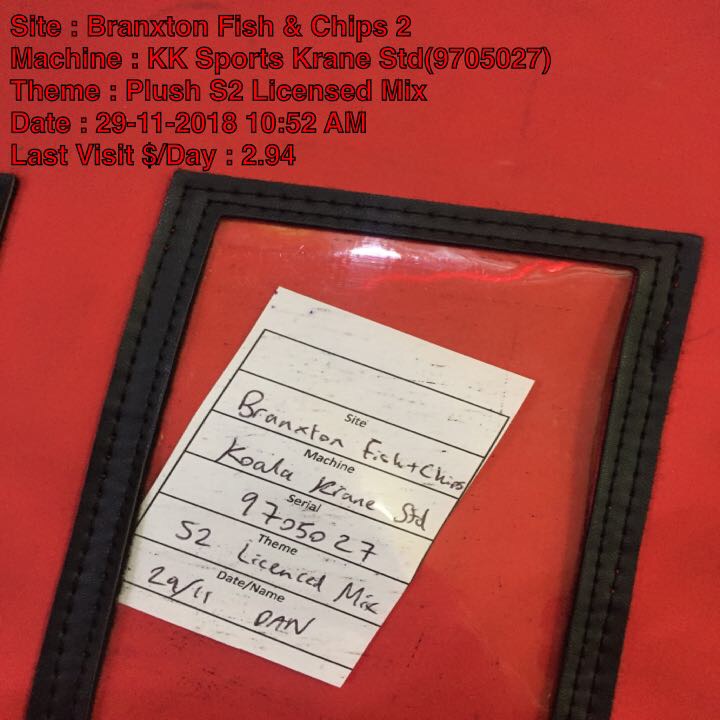 Site : Branxton Fish & Chips 2
Machine : KK Sports Krane Std(9705027)
Theme : Plush S2 Licensed Mix
Date : 29-11-2018 10:52 AM
Last Visit $/Day : 2.94
Site
Branxton Fish+Chips
Machine
Koala Krane Std
Serial
9705027
Theme
S2 Licenced Mix
Date/Name
29/11 DAN